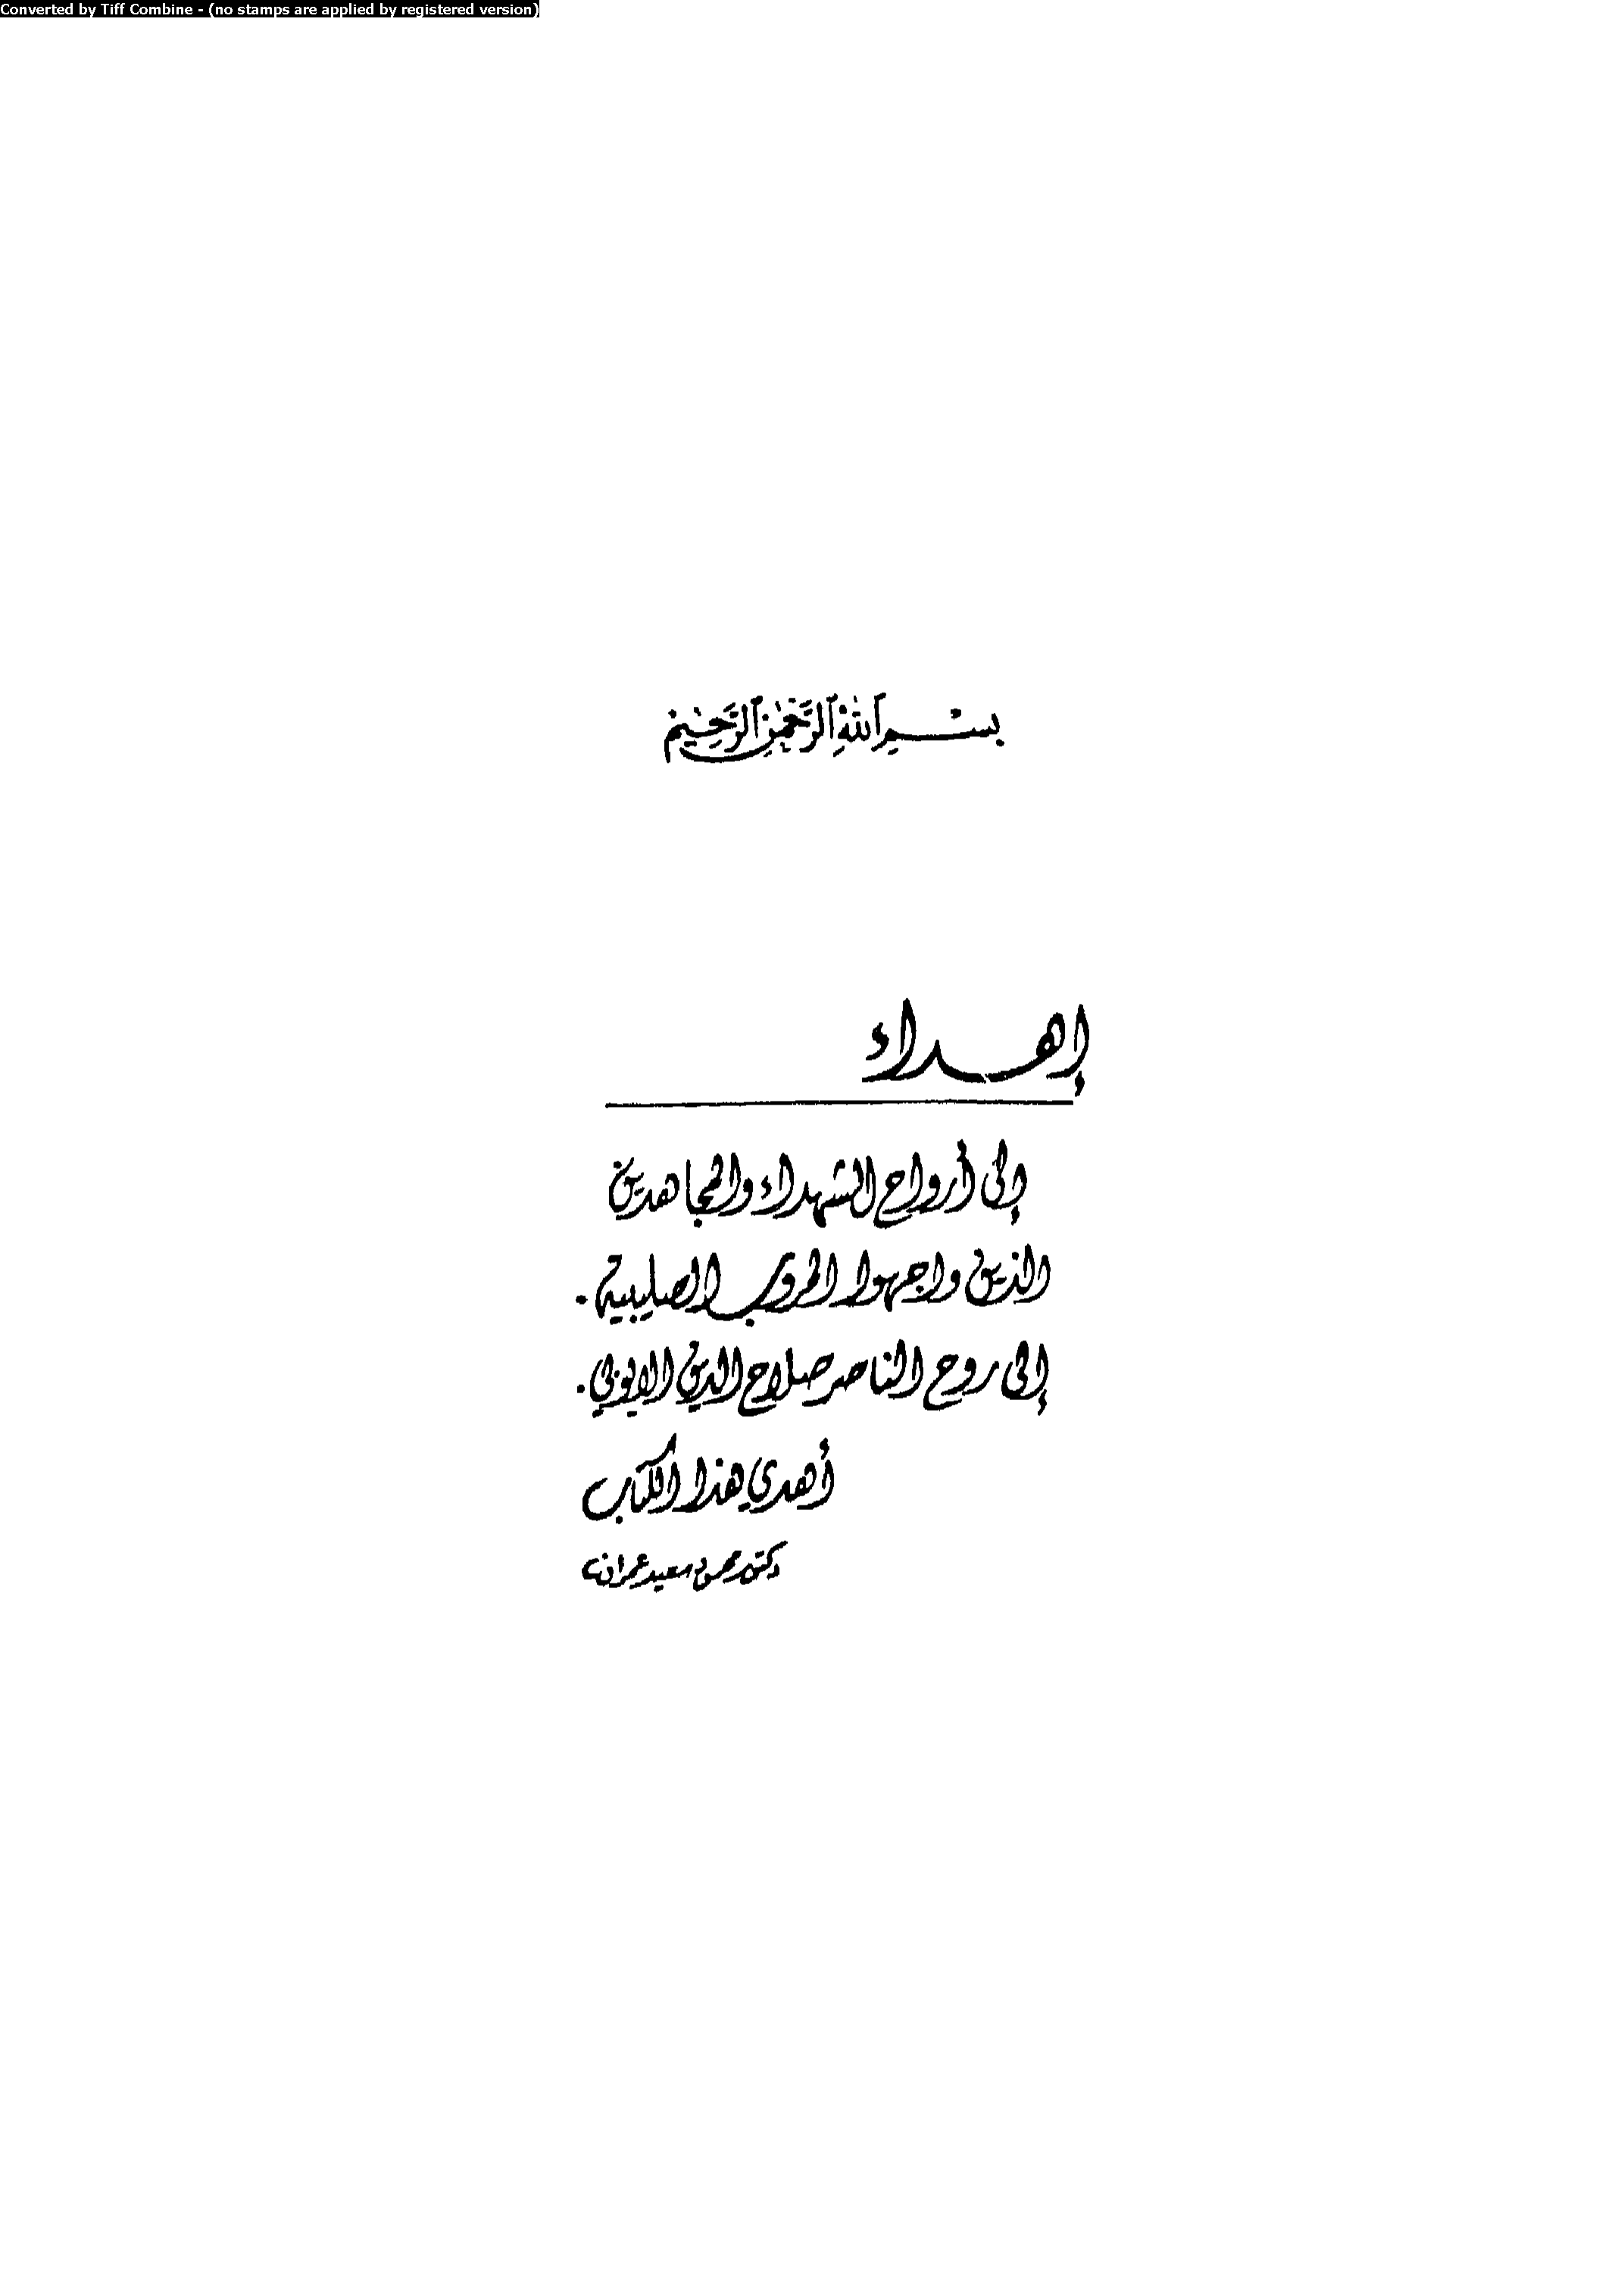 Converted by Tiff Combine - (no stamps are applied by registered version)
بِسْمِ اللهِ الرَّحْمٰنِ الرَّحِيْمِ
إهداء
إلى أرواح الشهداء والمجاهدين
الذين واجهوا الحروب الصليبية .
إلى روح الناصر صلاح الدين الايوبي .
أهدي هذا الكتاب
دكتور سعيد عمران